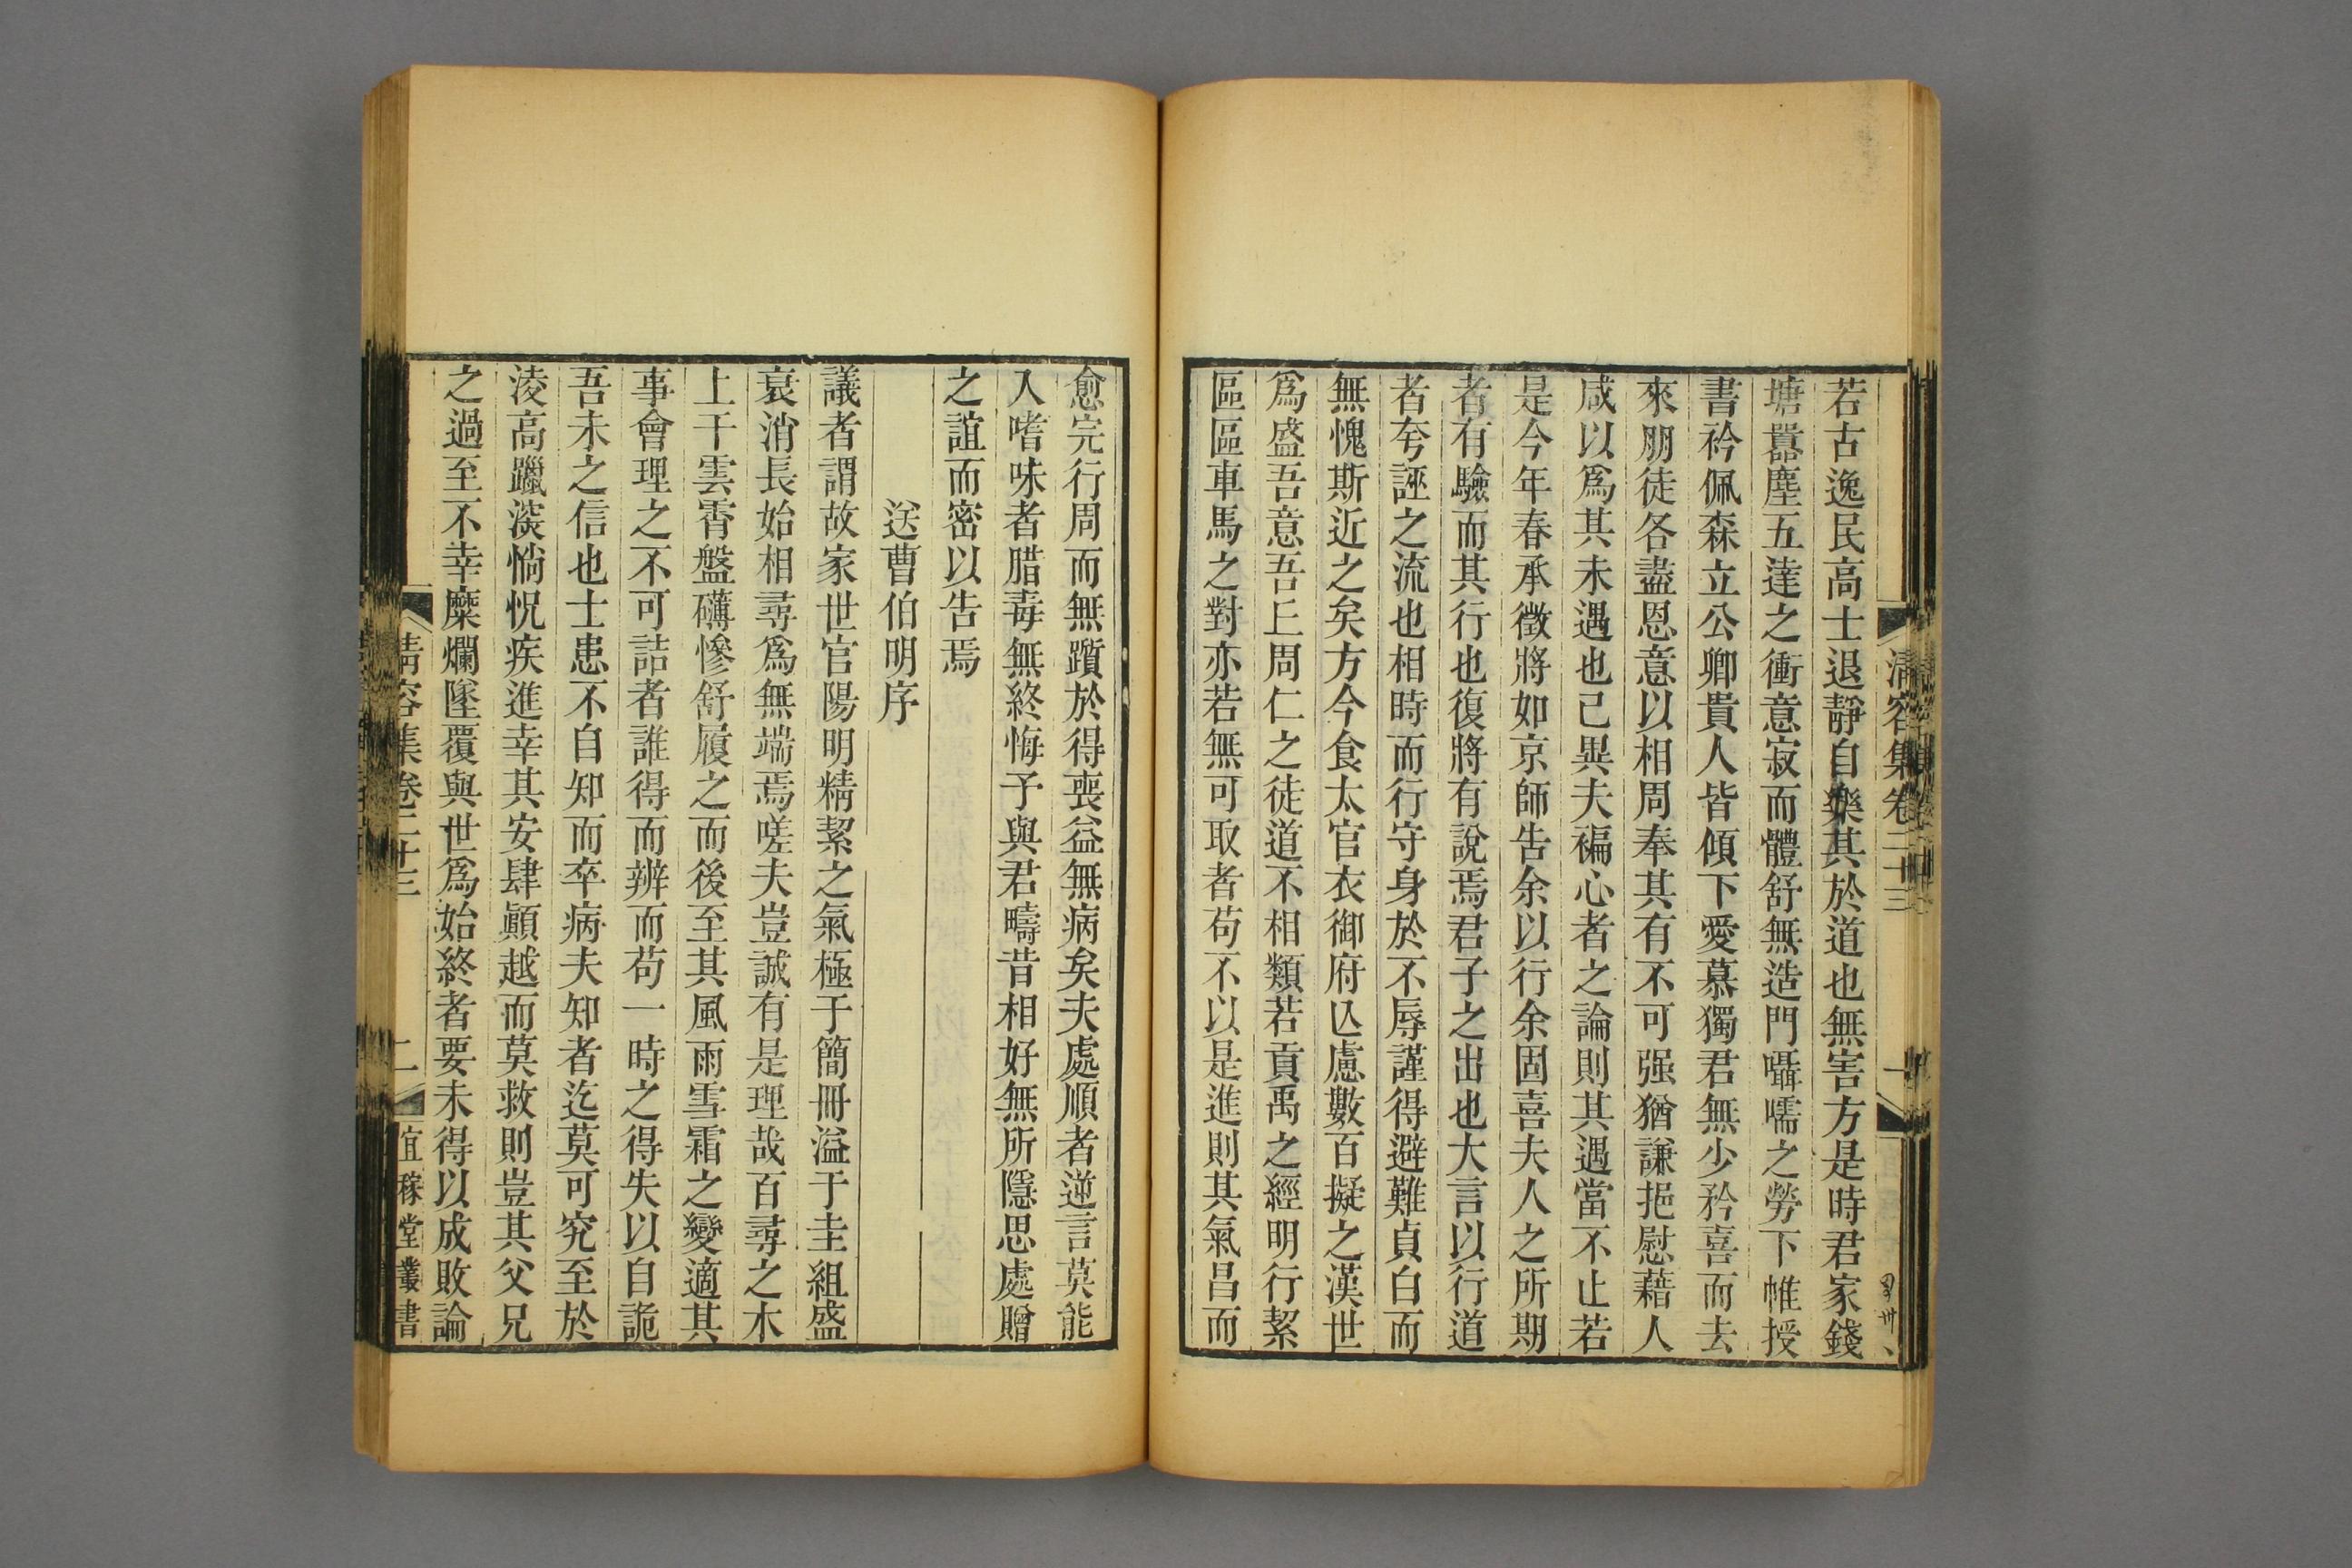 清容集卷二十三
一
若古逸民高士退靜自樂其於道也無害方是時君家錢
塘囂塵五達之衝意寂而體舒無造門囁嚅之勞下帷授
書衿佩森立公卿貴人皆傾下愛慕獨君無少矜喜而去
來朋徒各盡恩意以相周奉其有不可强猶謙挹慰藉人
咸以爲其未遇也己異夫褊心者之論則其遇當不止若
是今年春承徵將如京師告余以行余固喜夫人之所期
者有驗而其行也復將有說焉君子之出也大言以行道
者夸誣之流也相時而行守身於不辱謹得避難貞白而
無愧斯近之矣方今食太官衣御府亾慮數百擬之漢世
爲盛吾意吾上周仁之徒道不相類若貢禹之經明行絜
區區車馬之對亦若無可取者苟不以是進則其氣昌而
愈完行周而無躓於得喪益無病矣夫處順者逆言莫能
入嗜味者腊毒無終悔予與君疇昔相好無所隱思處贈
之誼而密以告焉
送曹伯明序
議者謂故家世官陽明精絜之氣極于簡冊溢于圭組盛
衰消長始相尋爲無端焉嗟夫豈誠有是理哉百尋之木
上干雲霄盤礴慘舒履之而後至其風雨雪霜之變適其
事會理之不可詰者誰得而辨而苟一時之得失以自詭
吾未之信也士患不自知而卒病夫知者迄莫可究至於
淩高躐漭惝怳疾進幸其安肆顚越而莫救則豈其父兄
之過至不幸糜爛墜覆與世爲始終者要未得以成敗論
清容集卷二十三
二
宜稼堂叢書